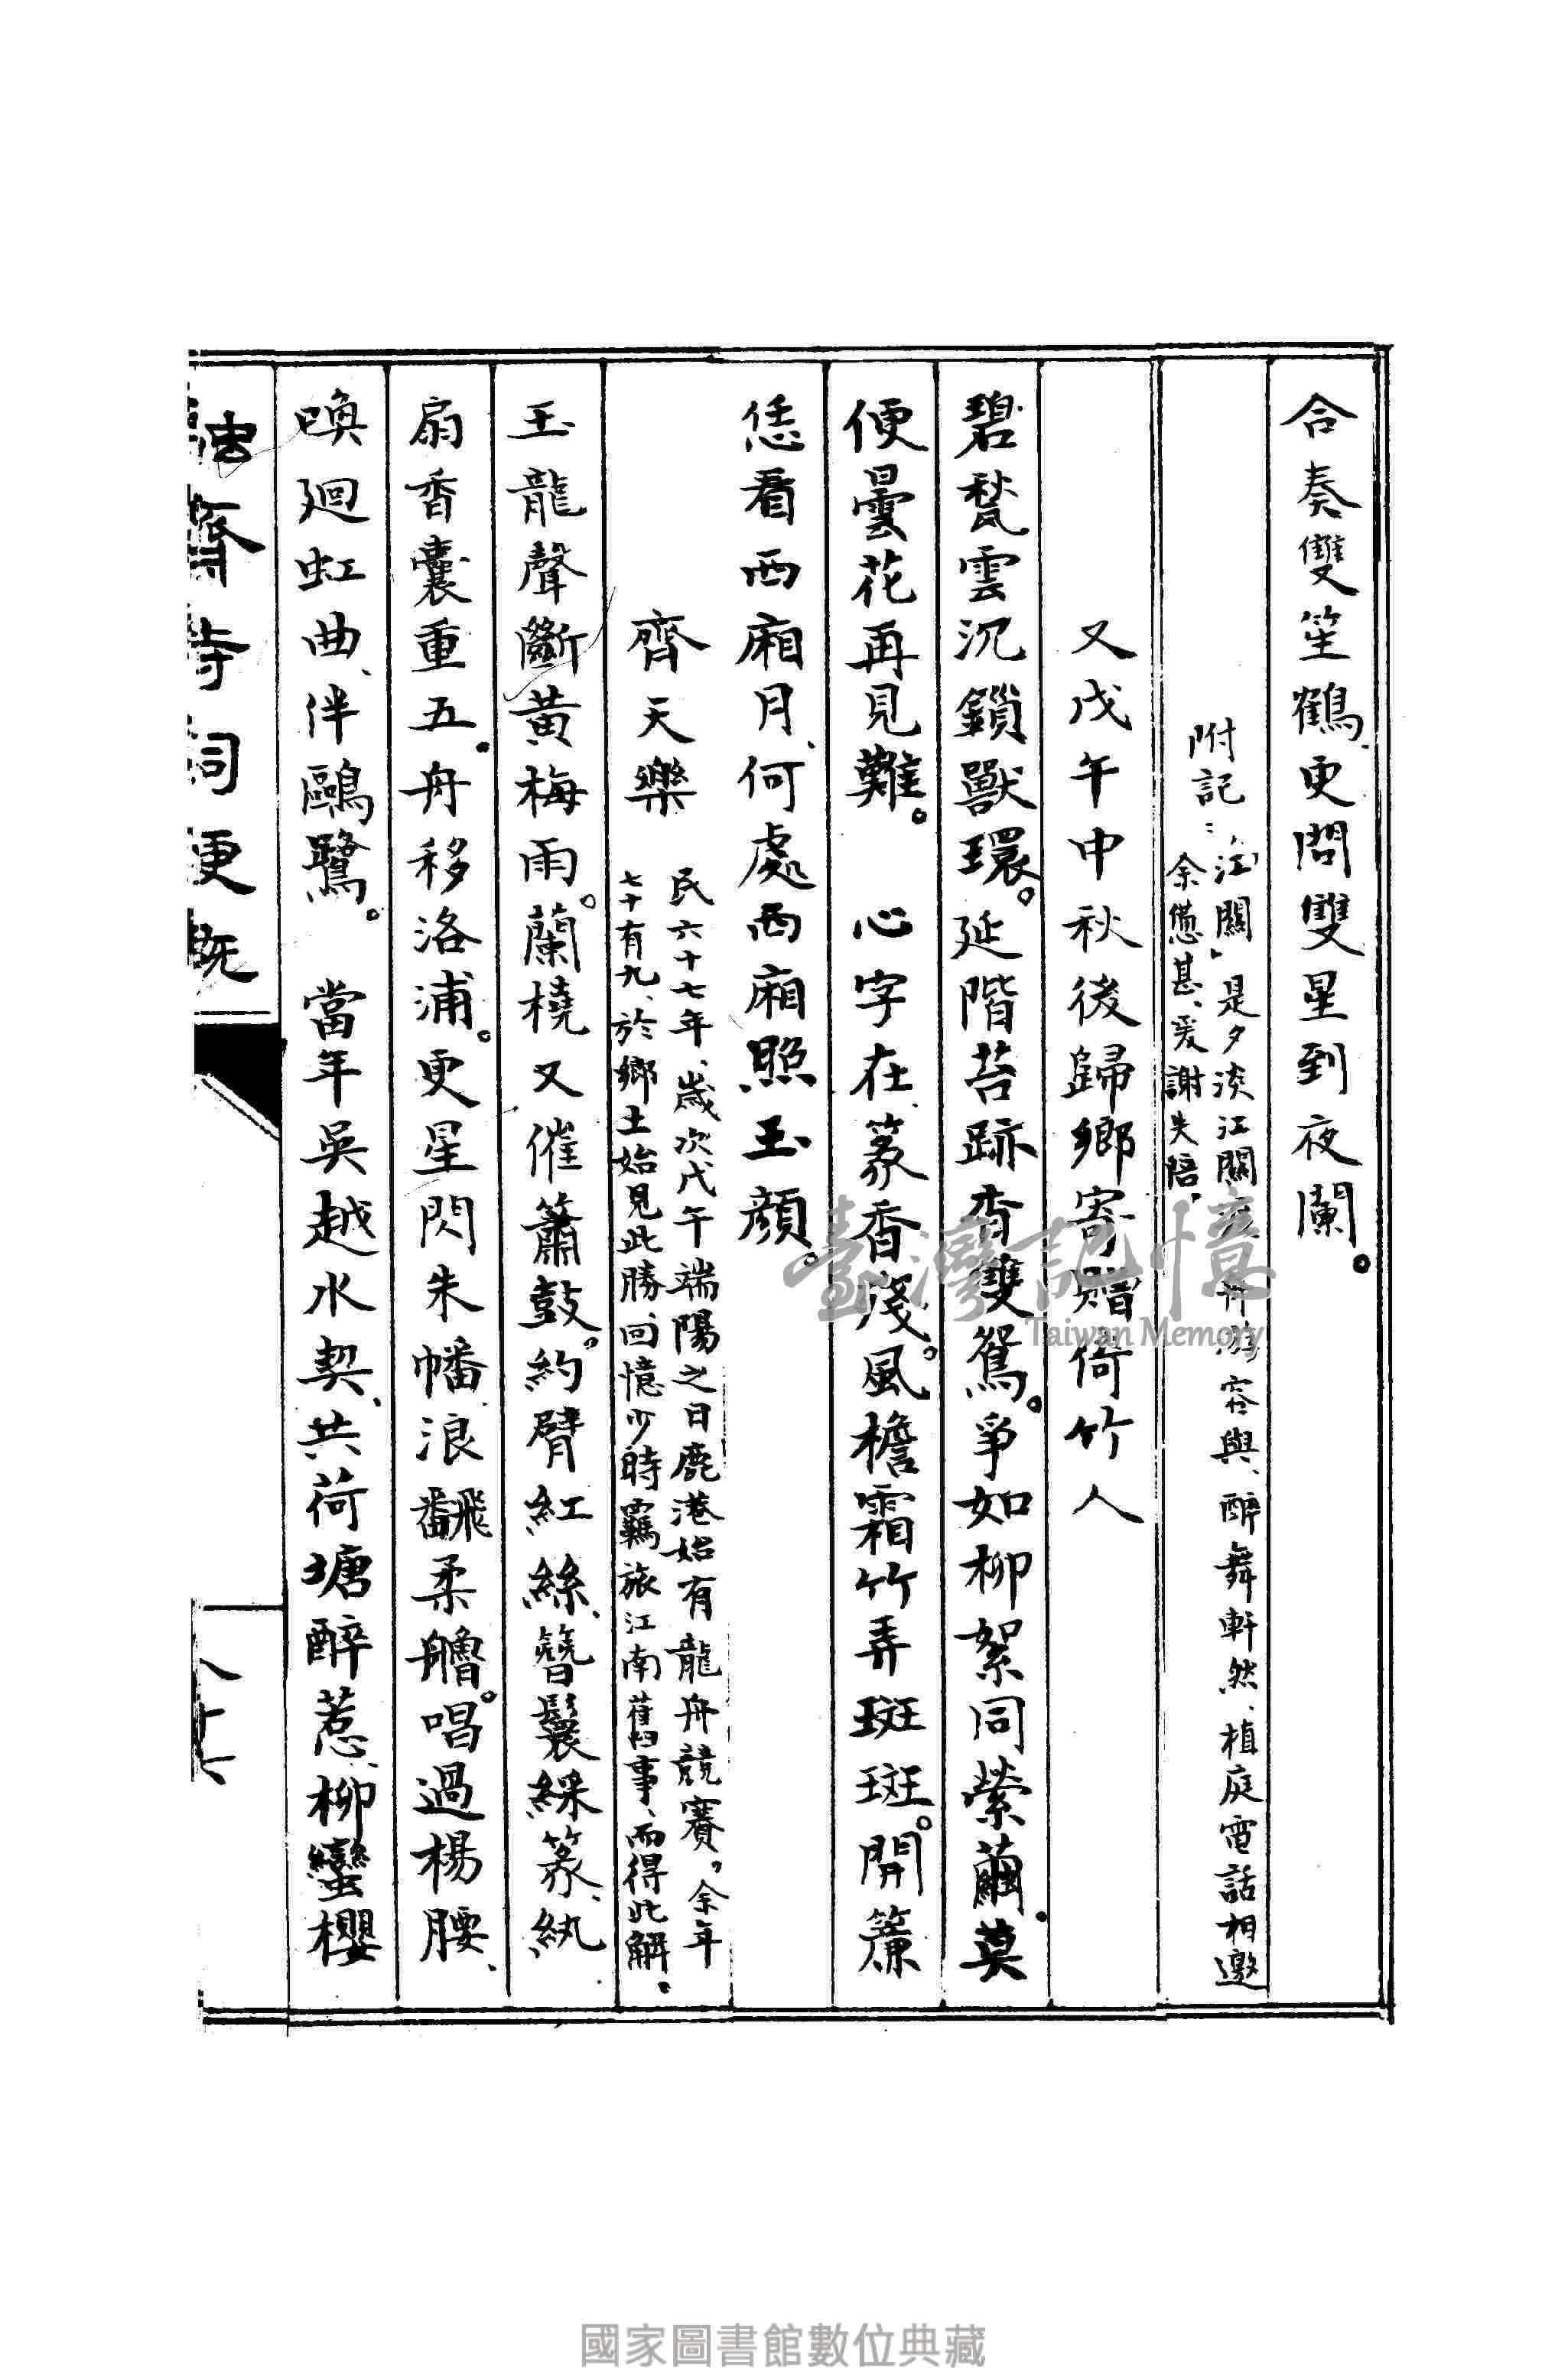 合奏雙笙鶴、更問雙星到夜闌。
附記：「江關」是夕淡江關 舟游容與、醉舞軒然、植庭電話相邀
余憊甚、爰謝失陪，
又戊午中秋後歸鄉寄贈倚竹人
碧甃雲沉鎖獸環。延階苔跡杳雙鴛。爭如柳絮同縈繭、莫
便曇花再見難。　心字在、篆香殘。風檐霜竹弄斑斑。開簾
恁看西廂月、何處西廂照玉顏。
齊天樂
民六十七年、歲次戊午端陽之日鹿港始有龍舟競賽，余年
七十有九、於鄉土始見此勝、回憶少時羈旅江南舊事、而得此解。
玉龍聲斷黃梅雨。蘭橈又催簫鼓。約臂紅絲、簪鬟綵篆、紈
扇香囊重五。舟移洛浦。更星閃朱幡、浪翻柔艪。唱過楊腰、
喚迴虹曲、伴鷗鷺。　當年吳越水契、共荷塘醉惹、柳蠻櫻
齋詩詞更既
八十七
臺灣記憶
Taiwan Memory
國家圖書館數位典藏